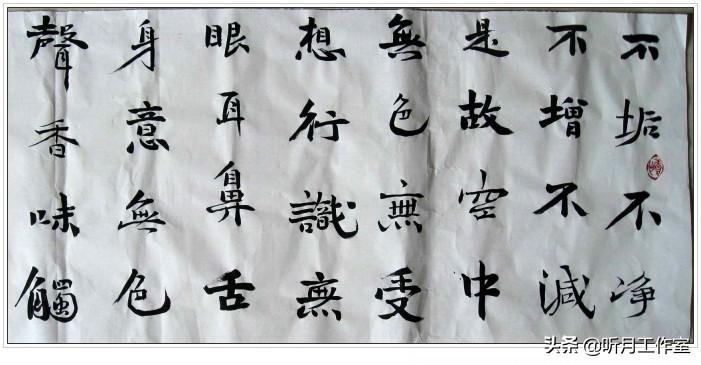 不垢不净
不增不減
是故空中
無色無受
想行識無
眼耳鼻舌
身意無色
聲香味觸
头条 @听月工作室